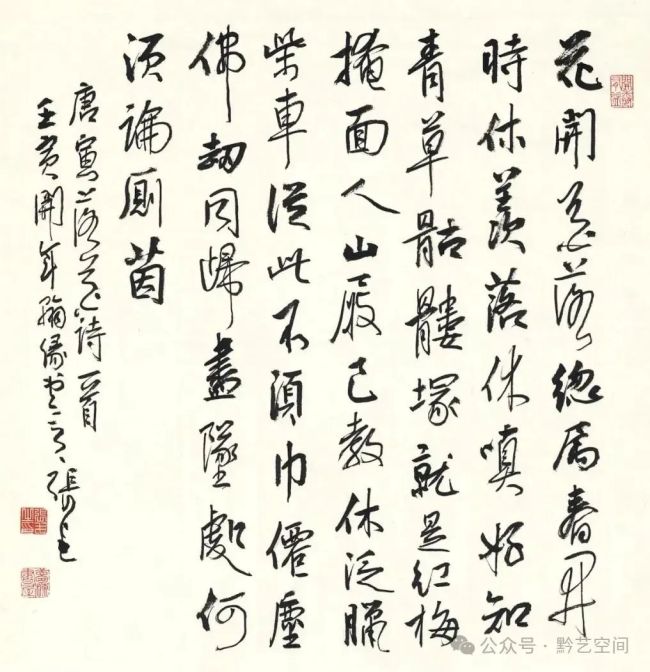 花開花落總属春開
時休羡落休嗔好知
青草骷髏塚就是红梅
掩面人山屐已教休泛臘
柴車從此不須巾僊塵
佛劫同歸盡墜處何
須論厠茵
唐寅落花詩一首
壬寅開年 張
公众号 · 黔艺空间